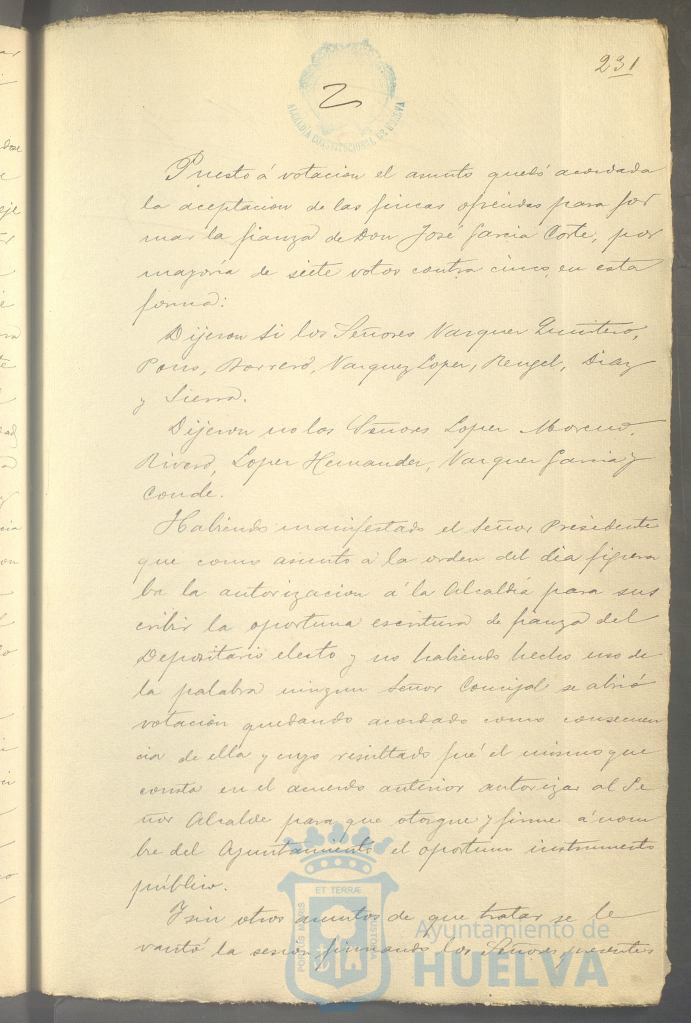 231
ALCALDIA CONSTITUCIONAL DE HUELVA
Puesto á votacion el asunto quedó acordada
la aceptacion de las fincas ofrecidas para for
mar la fianza de Don José Garcia Corte, por
mayoría de siete votos contra cinco, en esta
forma:
Dijeron si los Señores Vazquez Quintero,
Pons, Borrero, Vazquez Lopez, Rengel, Diaz
y Sierra.
Dijeron no los Señores Lopez Moreno,
Rivero, Lopez Hernandez, Vazquez Garcia y
Conde.
Habiendo manifestado el Señor Presidente
que como asunto á la orden del dia figura
ba la autorizacion á la Alcaldía para sus
cribir la oportuna escritura de fianza del
Depositario electo y no habiendo hecho uso de
la palabra ningun Señor Concejal se abrió
votacion quedando acordado como consecuen
cia de ella y cuyo resultado fué el mismo que
consta en el acuerdo anterior autorizar al Se
ñor Alcalde para que otorgue y firme á nom
bre del Ayuntamiento el oportuno instrumento
público.
Y sin otros asuntos de que tratar se le
vantó la sesion firmando los Señores presentes
PORTUS MARIS
ET TERRÆ
CUSTODIA
Ayuntamiento de
HUELVA